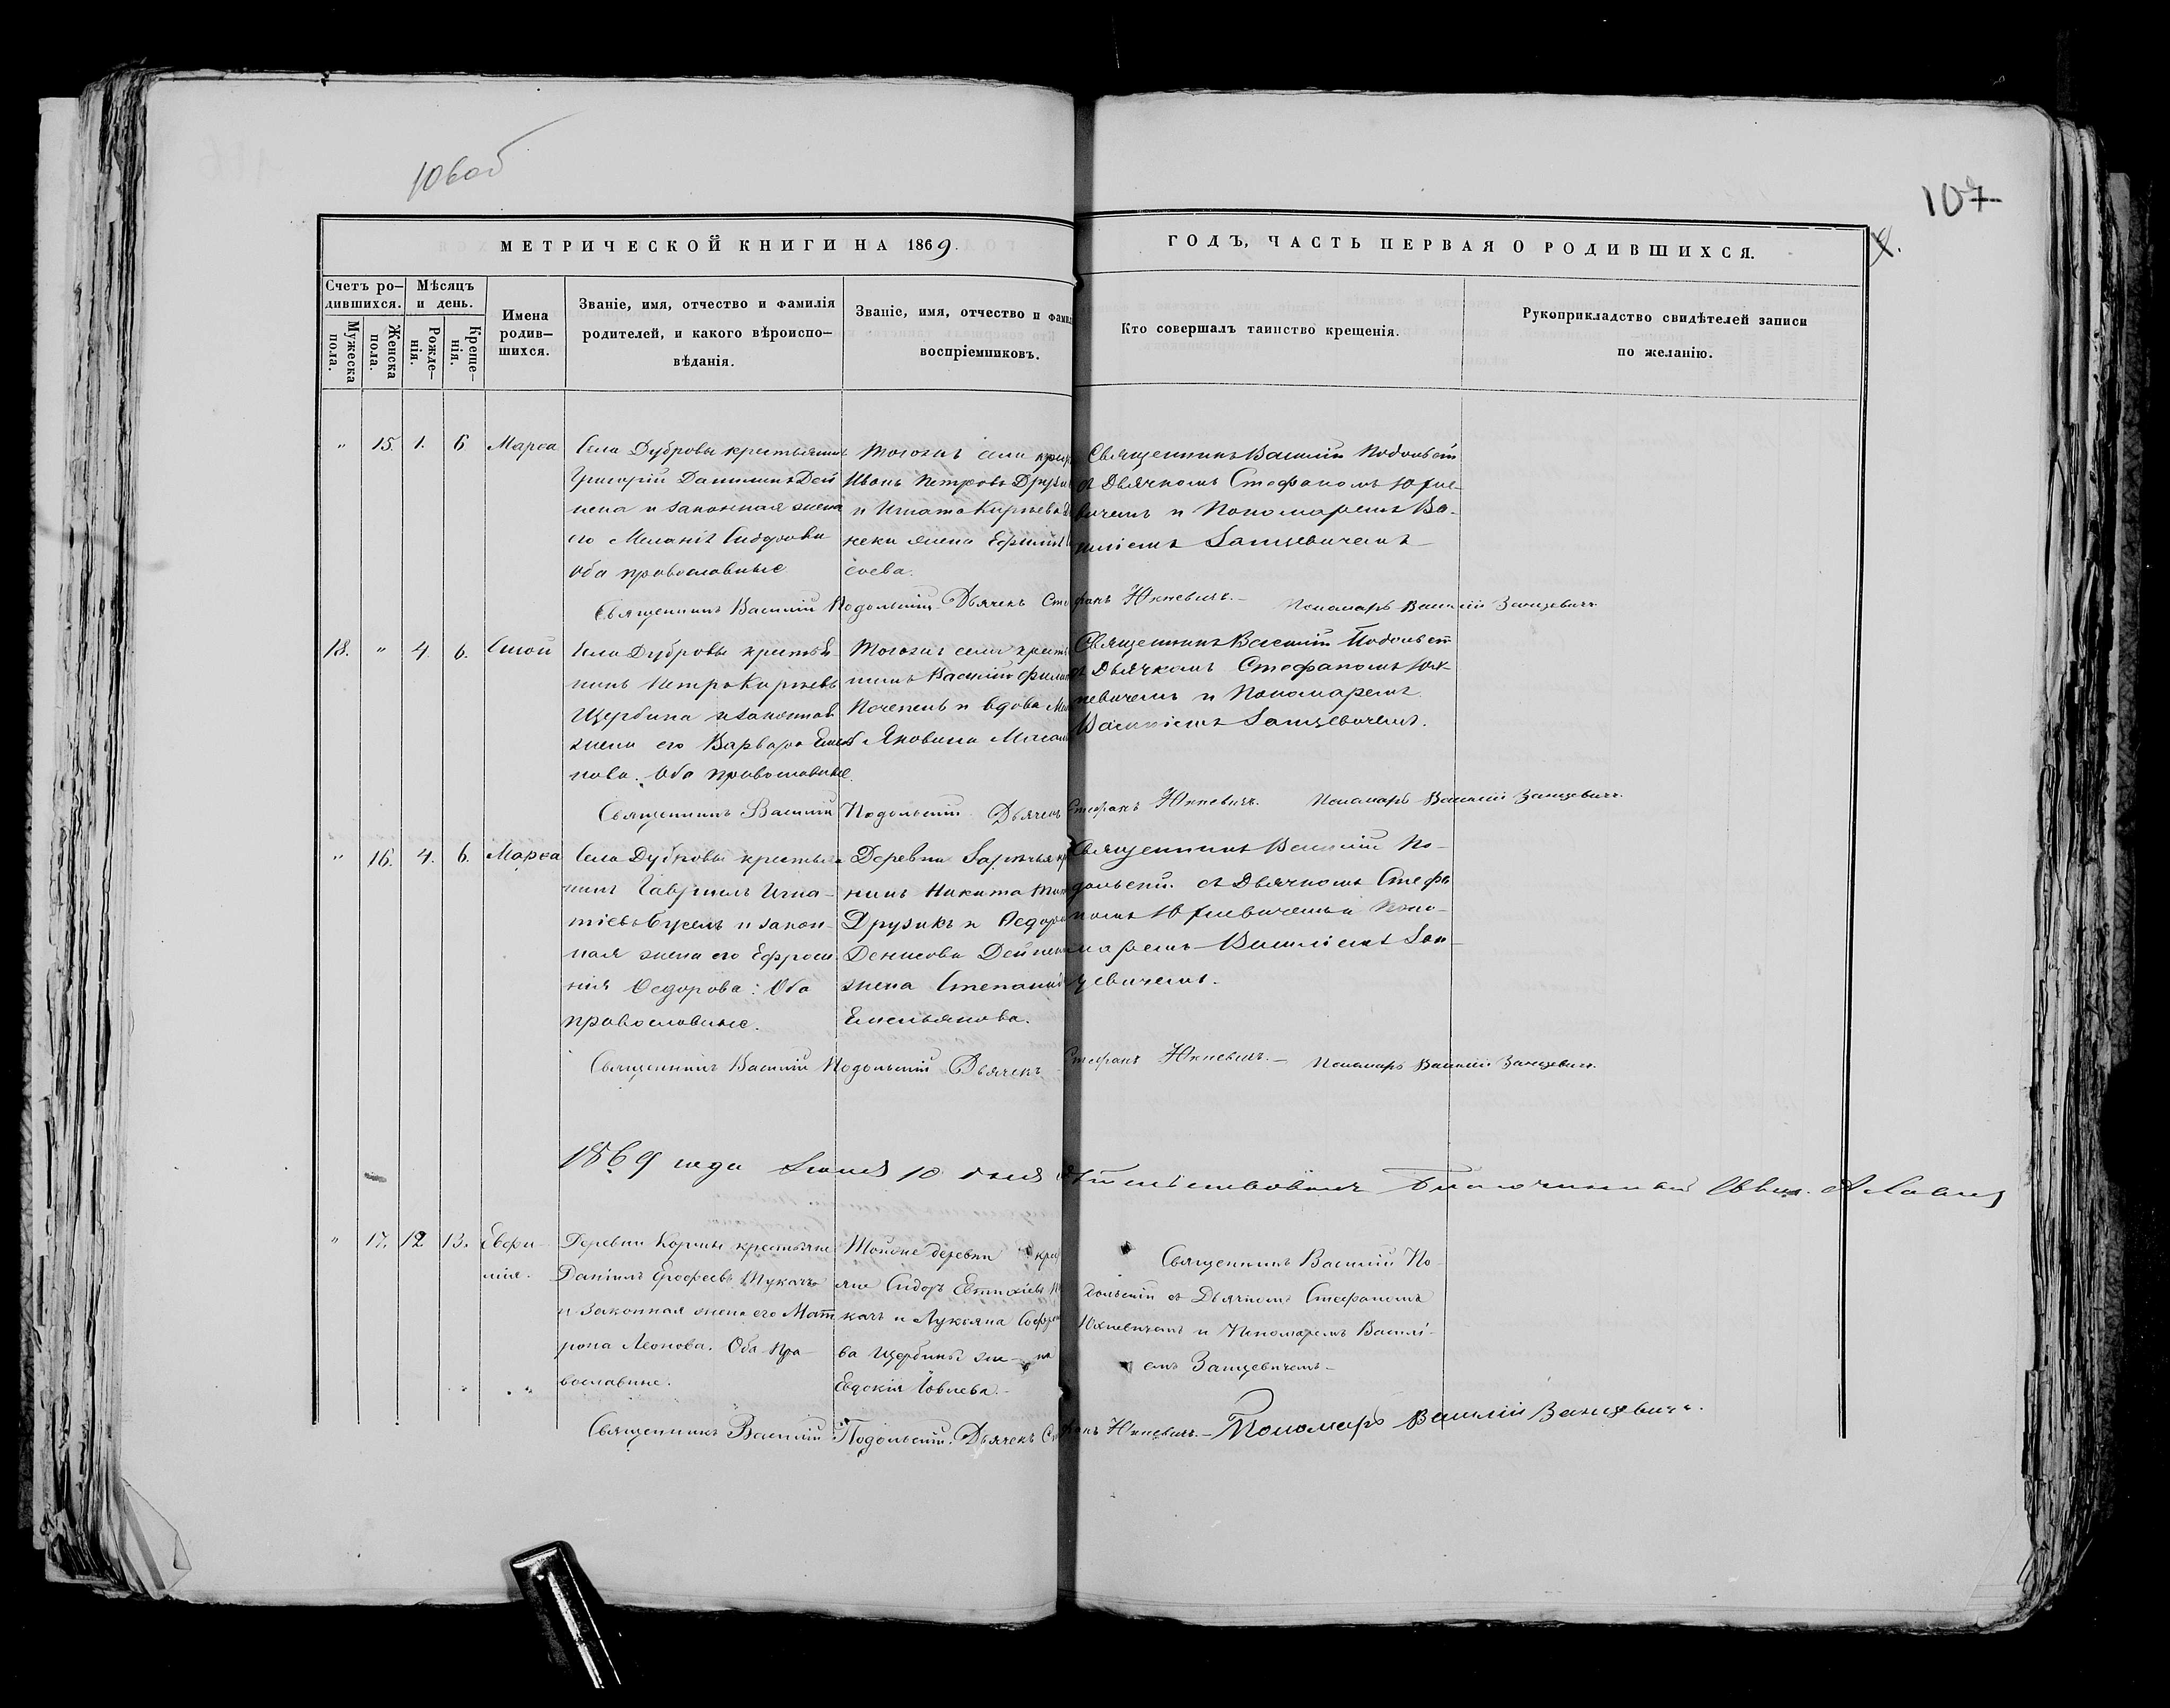 106 об
107
МЕТРИЧЕСКОЙ КНИГИ НА 1869.
ГОДЪ, ЧАСТЬ ПЕРВАЯ О РОДИВШИХСЯ.
Счетъ ро-
дившихся.
Мѣсяцъ
и день.
Мужеска
пола.
Женска
пола.
Рожде-
нія.
Креще-
нія.
Имена
родив-
шихся.
Званіе, имя, отчество и фамилія
родителей, и какого вѣроиспо-
вѣданія.
Званіе, имя, отчество и фами
воспріемниковъ.
Кто совершалъ таинство крещенія.
Рукоприкладство свидѣтелей записи
по желанію.
" 15. 1. 6
Села Дубровы крестьянинъ
Григорій Дей
нека и законная жена
его Меланія
Оба православные
Тогожъ села
Иванъ Петровъ
и Игната Кирѣева
неки жена
Священникъ Василій Подольскій
съ Дьячкомъ Стефаномъ Юхне-
вичемъ и Пономаремъ Ва-
силіемъ Занцевичемъ
Священникъ Василій Подольскій Дьячекъ Стефанъ Юхневичъ.– Пономарь Василій Занцевичъ
18. " 4 6.
Села Дубровы крестья-
нинъ Петръ Кирѣевъ
Щербина и законная
жена его Варвара Емелья
нова. Оба православные.
Тогожъ села кресть
нинъ Василій
и вдова
Яковина
Священникъ Василій Подольскій
съ Дьячкомъ Стефаномъ Юх-
невичемъ и Пономаремъ
Василіемъ Занцевичемъ.
Священникъ Василій Подольскій Дьячекъ Стефанъ Юхневичъ. Пономарь Василій Занцевичъ.
" 16. 4. 6. Марѳа
Села Дубровы крестья-
нинъ Гавріилъ Игна-
тіевъ и закон-
ная жена его Ефроси
нія Ѳедорова: Оба
православные.
Деревни Зарѣчья кр
нинъ Никита
Друзикъ и Ѳедора
Денисова Дейнеки
жена Степанида
Емельянова.
Священникъ Василій По-
дольскій съ Дьячкомъ Стефа
номъ Юхневичемъ и Поно-
маремъ Василіемъ Зан-
цевичемъ.
Священникъ Василій Подольскій Дьячекъ Стефанъ Юхневичъ.– Пономарь Василій Занцевичъ.
1869 года 10 дня
" 17. 12 13. Евфи-
мія.
Деревни крестьяне
Даніилъ Ерофеевъ Ткачъ
и законная жена его Мат
рона Леонова. Оба пра-
вославные.
Тойже деревни кре
яне Сидоръ
качъ и Лукіана
ва Щербины же-на
Евдокія Іовлева.–
Священникъ Василій По-
дольскій съ Дьячкомъ Стефаномъ
Юхневичемъ и Пономаремъ Василі-
емъ Занцевичемъ–
Священникъ Василій Подольскій. Дьячекъ Стефанъ Юхневичъ.– Пономарь Василій Занцевичъ.